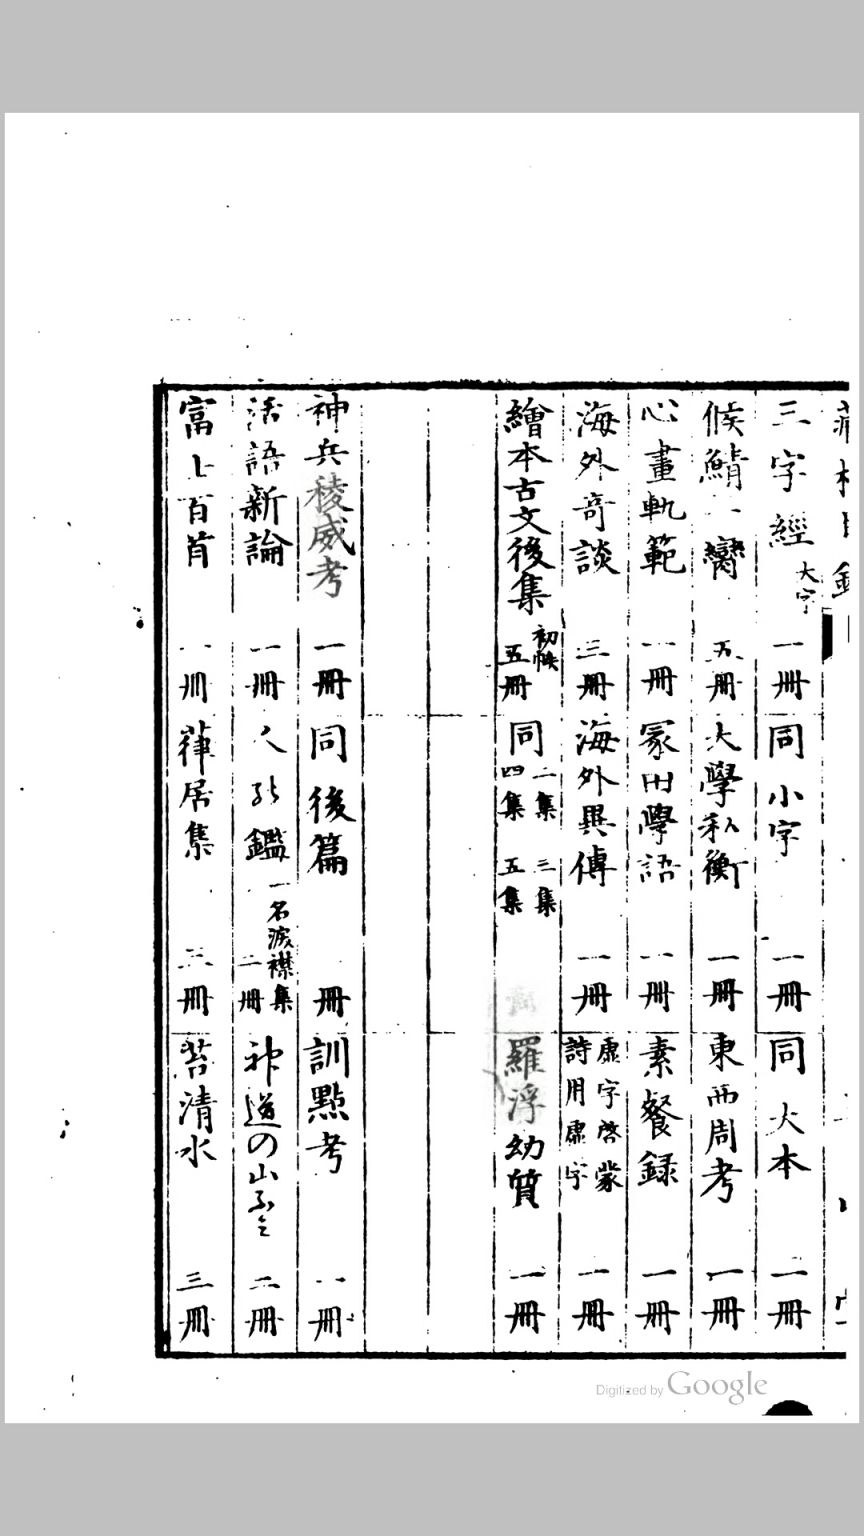 三字經 大字 一冊 同 小字 一冊 同 大本 一冊
候鯖一臠 五冊 大學私衡 一冊 東西周考 一冊
心畫軌範 一冊 冢田學語 一冊 素餐録 一冊
海外奇談 三冊 海外異傳 一冊 虚字啓蒙 詩用虚字 一冊
繪本古文後集 初帙 五冊 同 二集 三集 四集 五集 羅浮幼質 一冊
神兵稜威考 一冊 同後篇 冊 訓點考 一冊
活語新論 一冊 人 鑑 一名 襟集 二冊 神道の山 二冊
富士百首 一冊 葎居集 三冊 苔清水 三冊
Digitized by Google